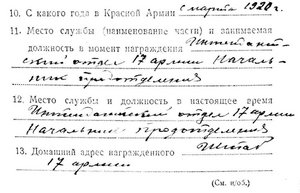 10. С какого года в Красной Армии с марта 1920 г.
11. Место службы (наименование части) и занимаемая
должность в момент награждения Интендантский
отдел 17 армии Началь-
ник продотделения
12. Место службы и должность в настоящее время
Интендантский отдел 17 армии
Начальник продотделения
13. Домашний адрес награжденного Штаб
17 армии
(См. н/об.)